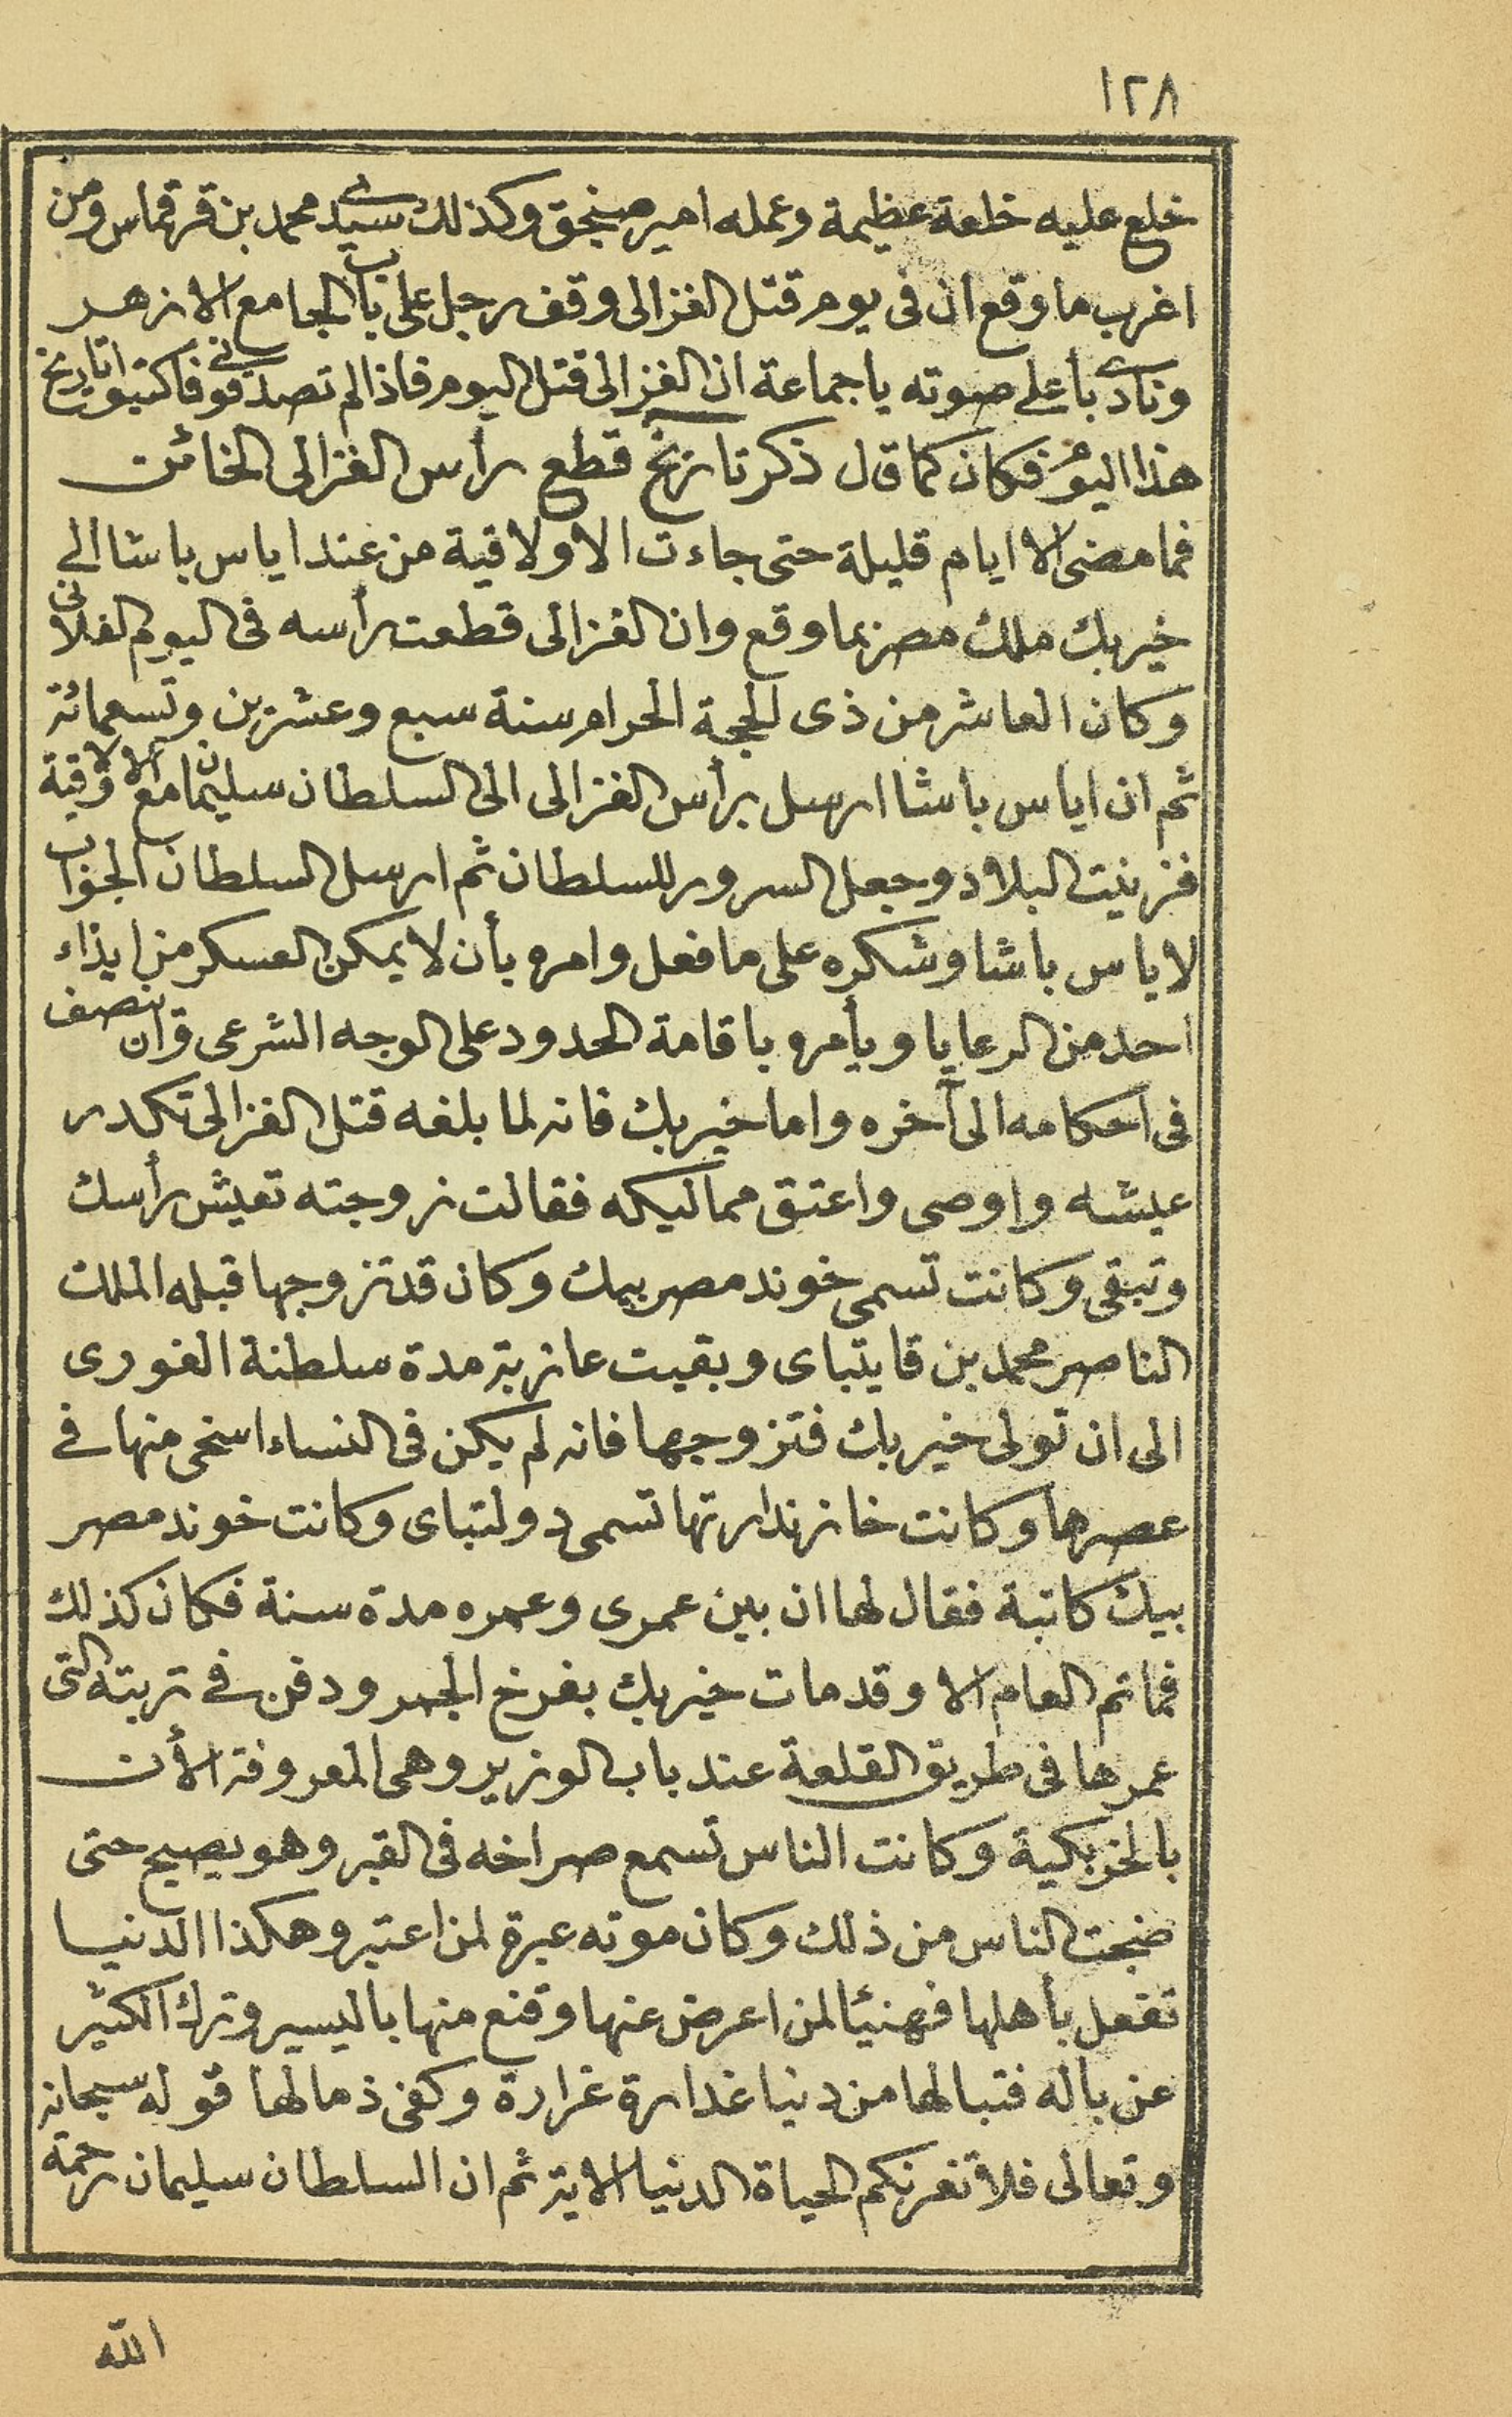 ١٢٨
خلع عليه خلعة عظيمة وعمله امير صنجق وكذلك سيدى محمد بن قرقماس ومن
اغرب ما وقع ان فى يوم قتل الغزالى وقف رجل على باب الجامع الازهر
ونادى بأعلى صوته ياجماعة ان الغزالى قتل اليوم فاذا لم تصدقونى فاكتبوا تاريخ
هذا اليوم فكان كما قال ذكر تاريخ قطع رأس الغزالى الخائن
فما مضى الا ايام قليلة حتى جاءت الاولاقية من عند اياس باشا الى
خيربك ملك مصر بما وقع وان الغزالى قطعت رأسه فى اليوم الفلانى
وكان العاشر من ذى الحجة الحرام سنة سبع وعشرين وتسعمائة
ثم ان اياس باشا ارسل برأس الغزالى الى السلطان سليمان مع الاولاقية
فزينت البلاد وجعل السرور للسلطان ثم ارسل السلطان الجواب
لاياس باشا وشكره على ما فعل وامره بأن لا يمكن العسكر من ايذاء
احد من الرعايا ويأمره باقامة الحدود على الوجه الشرعى وان ينصف
فى احكامه الى آخره واما خيربك فانه لما بلغه قتل الغزالى تكدر
عيشه واوصى واعتق مماليكه فقالت زوجته تعيش رأسك
وتبقى وكانت تسمى خوند مصر بيك وكان قد تزوجها قبله الملك
الناصر محمد بن قايتباى وبقيت عازبة مدة سلطنة الغورى
الى ان تولى خيربك فتزوجها فانه لم يكن فى النساء اسخى منها فى
عصرها وكانت خازندارتها تسمى دولتباى وكانت خوند مصر
بيك كاتبة فقال لها ان بين عمرى وعمره مدة سنة فكان كذلك
فما تم العام الا وقد مات خيربك بفرخ الجمر ودفن فى تربته التى
عمرها فى طريق القلعة عند باب الوزير وهى المعروفة الأن
بالخربكية وكانت الناس تسمع صراخه فى القبر وهو يصيح حتى
ضجت الناس من ذلك وكان موته عبرة لمن اعتبر وهكذا الدنيا
تفعل بأهلها فهنيئا لمن اعرض عنها وقنع منها باليسير وترك الكثير
عن باله فتبا لها من دنيا غدارة غرارة وكفى ذما لها قوله سبحانه
وتعالى فلا تغرنكم الحياة الدنيا الاية ثم ان السلطان سليمان رحمه
الله